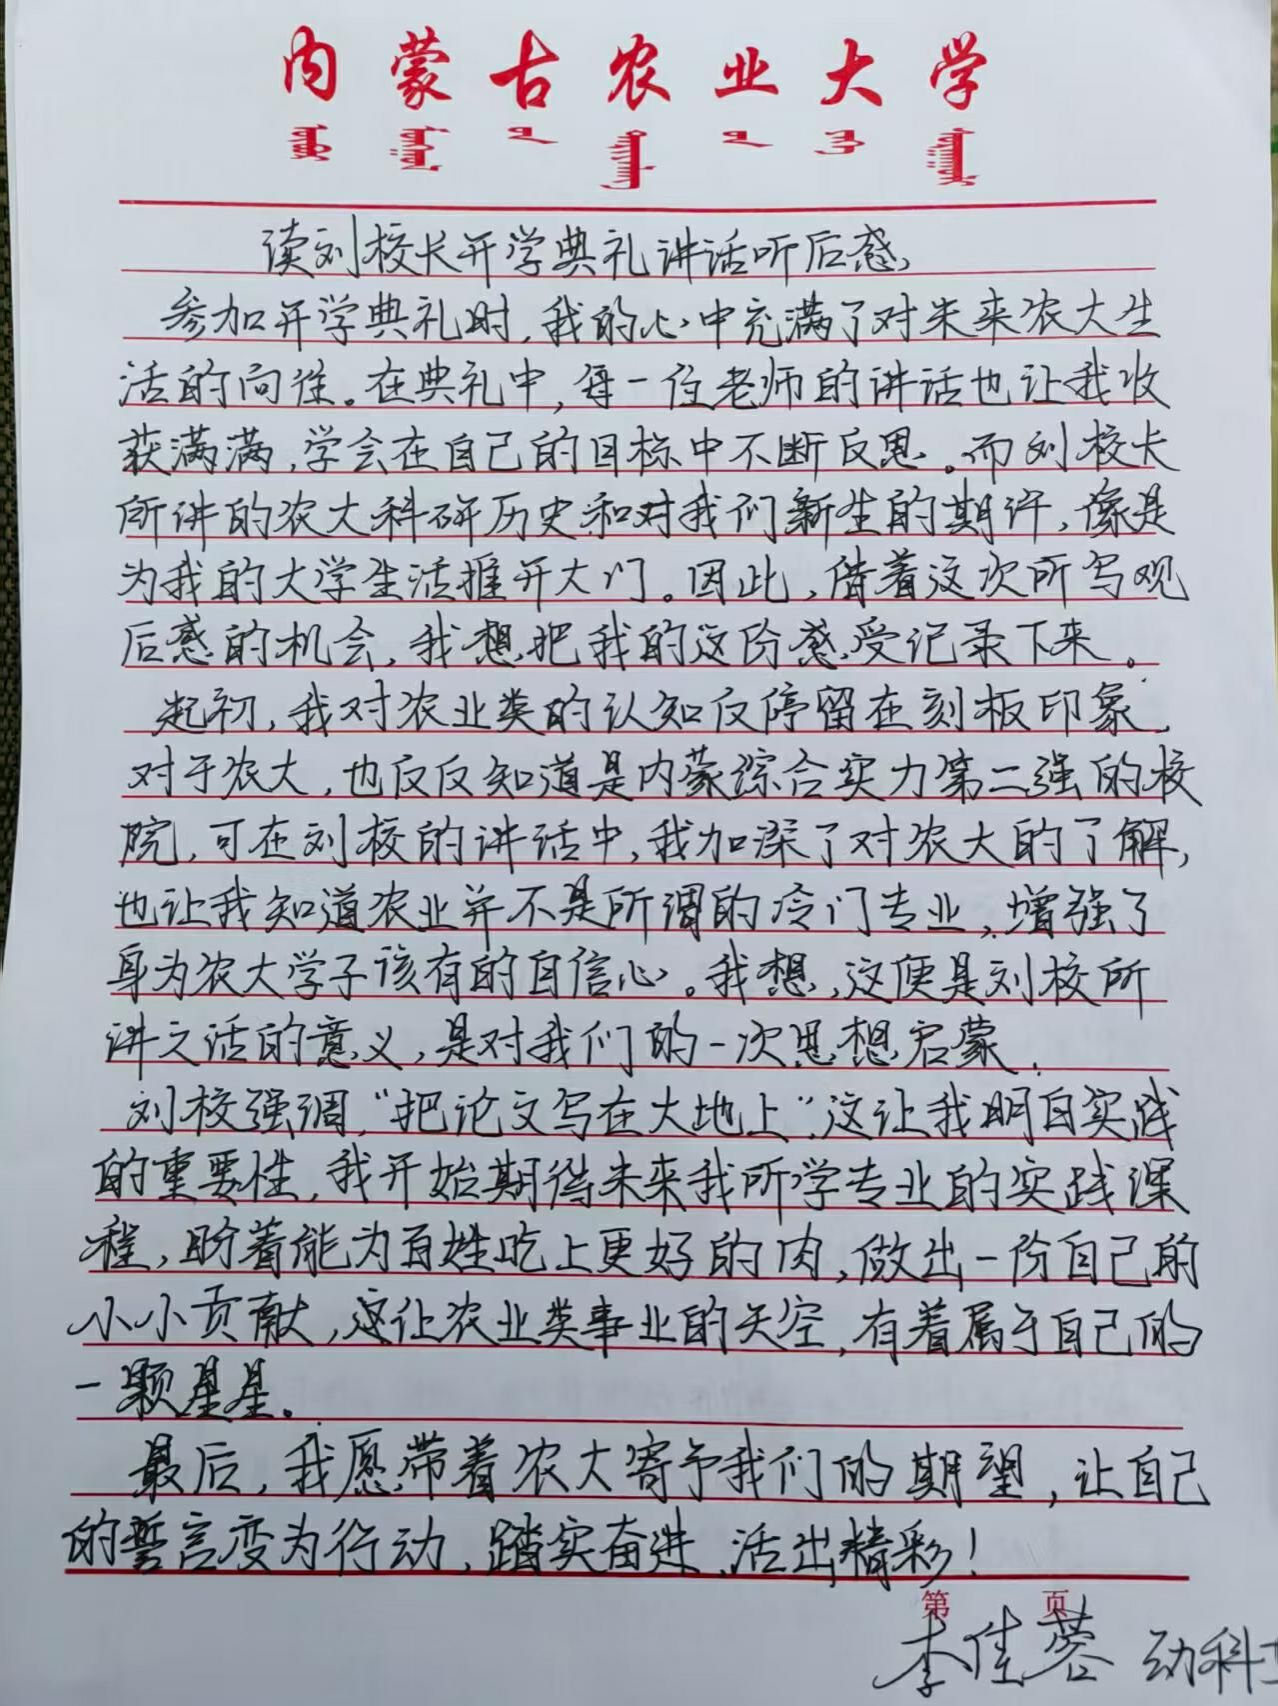 内蒙古农业大学
读刘校长开学典礼讲话听后感
参加开学典礼时,我的心中充满了对未来农大生
活的向往。在典礼中,每一位老师的讲话也让我收
获满满,学会在自己的目标中不断反思。而刘校长
所讲的农大科研历史和对我们新生的期许,像是
为我的大学生活推开大门。因此,借着这次所写观
后感的机会,我想把我的这份感受记录下来。
起初,我对农业类的认知仅停留在刻板印象,
对于农大,也仅仅知道是内蒙综合实力第二强的校
院,可在刘校的讲话中,我加深了对农大的了解,
也让我知道农业并不是所谓的冷门专业,增强了
身为农大学子该有的自信心。我想,这便是刘校所
讲之话的意义,是对我们的一次思想启蒙.
刘校强调,“把论文写在大地上”,这让我明白实践
的重要性,我开始期待未来我所学专业的实践课
程,盼着能为百姓吃上更好的肉,做出一份自己的
小小贡献,这让农业类事业的天空,有着属于自己的
一颗星星。
最后,我愿带着农大寄予我们的期望,让自己
的誓言变为行动,踏实奋进,活出精彩!
第 页
李佳蓉 动科